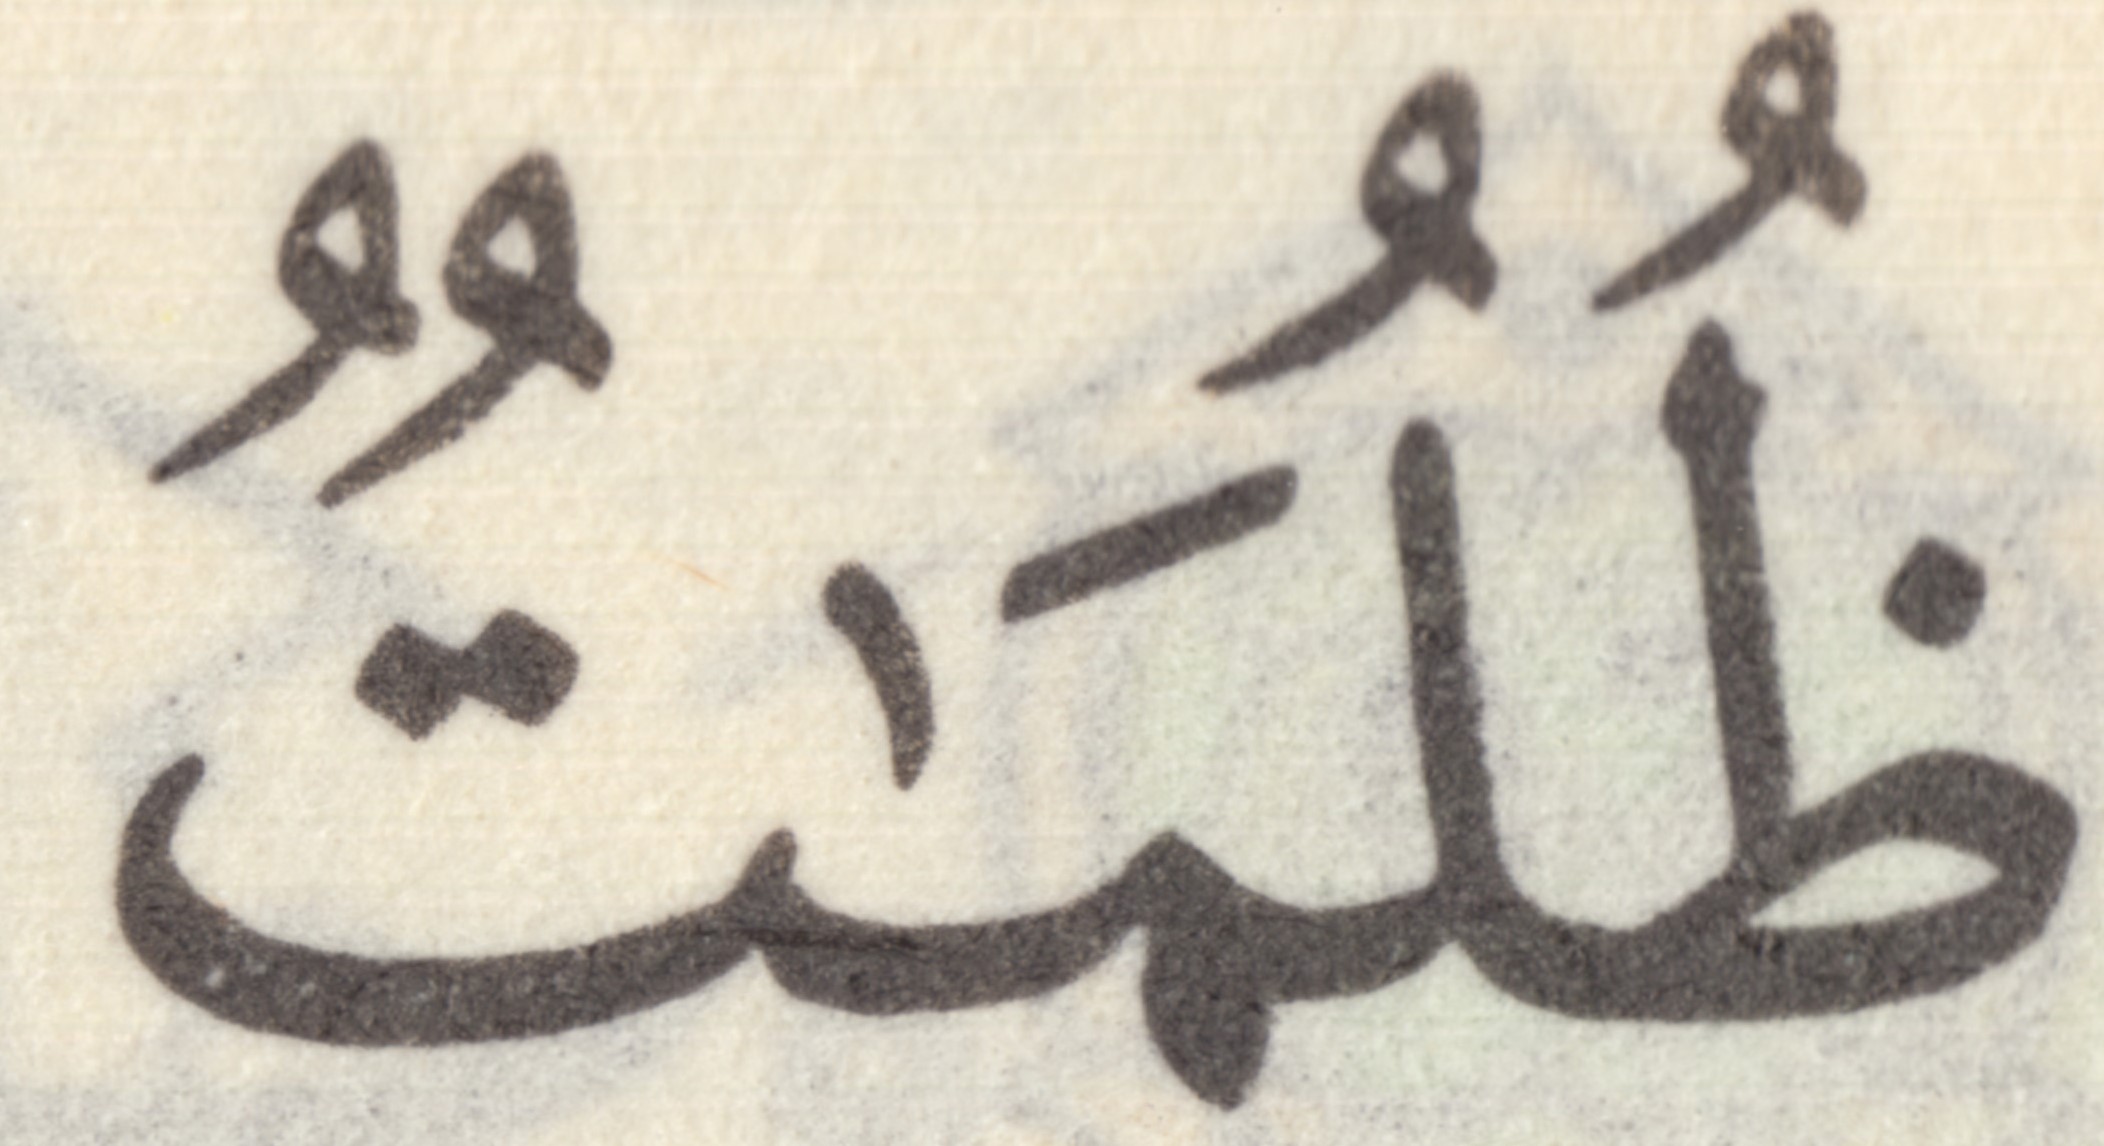 ظُلُمَٰتٌ